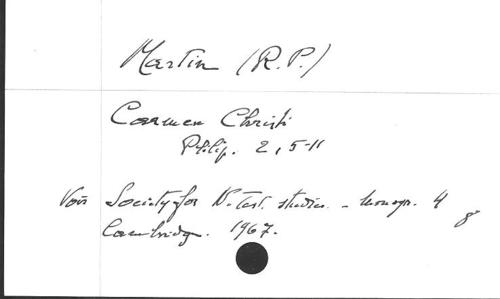 Martin (R.P.)
Carmen Christi
Philip. 2, 5-11
Voir Society for N. Test. studies. - Monogr. 4
8
Cambridge. 1967.